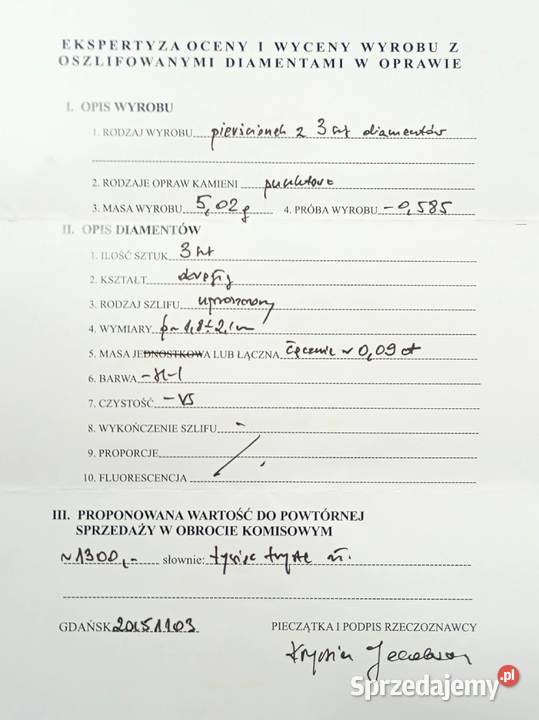 EKSPERTYZA OCENY I WYCENY WYROBU Z
OSZLIFOWANYMI DIAMENTAMI W OPRAWIE
I. OPIS WYROBU
1. RODZAJ WYROBU pierścionek z 3 szt diamentów
2. RODZAJE OPRAW KAMIENI punktowe
3. MASA WYROBU 5,02 g 4. PRÓBA WYROBU - 0,585
II. OPIS DIAMENTÓW
1. ILOŚĆ SZTUK 3 szt
2. KSZTAŁT okrągły
3. RODZAJ SZLIFU uproszczony
4. WYMIARY ~ 1,8 ± 2,1
5. MASA JEDNOSTKOWA LUB ŁĄCZNA Łącznie ~ 0,09 ct
6. BARWA - H-I
7. CZYSTOŚĆ - VS
8. WYKOŃCZENIE SZLIFU -
9. PROPORCJE
10. FLUORESCENCJA
III. PROPONOWANA WARTOŚĆ DO POWTÓRNEJ
SPRZEDAŻY W OBROCIE KOMISOWYM
~ 1300,- słownie: tysiąc trzysta zł.
GDAŃSK 20151103 PIECZĄTKA I PODPIS RZECZOZNAWCY
Sprzedajemy.pl